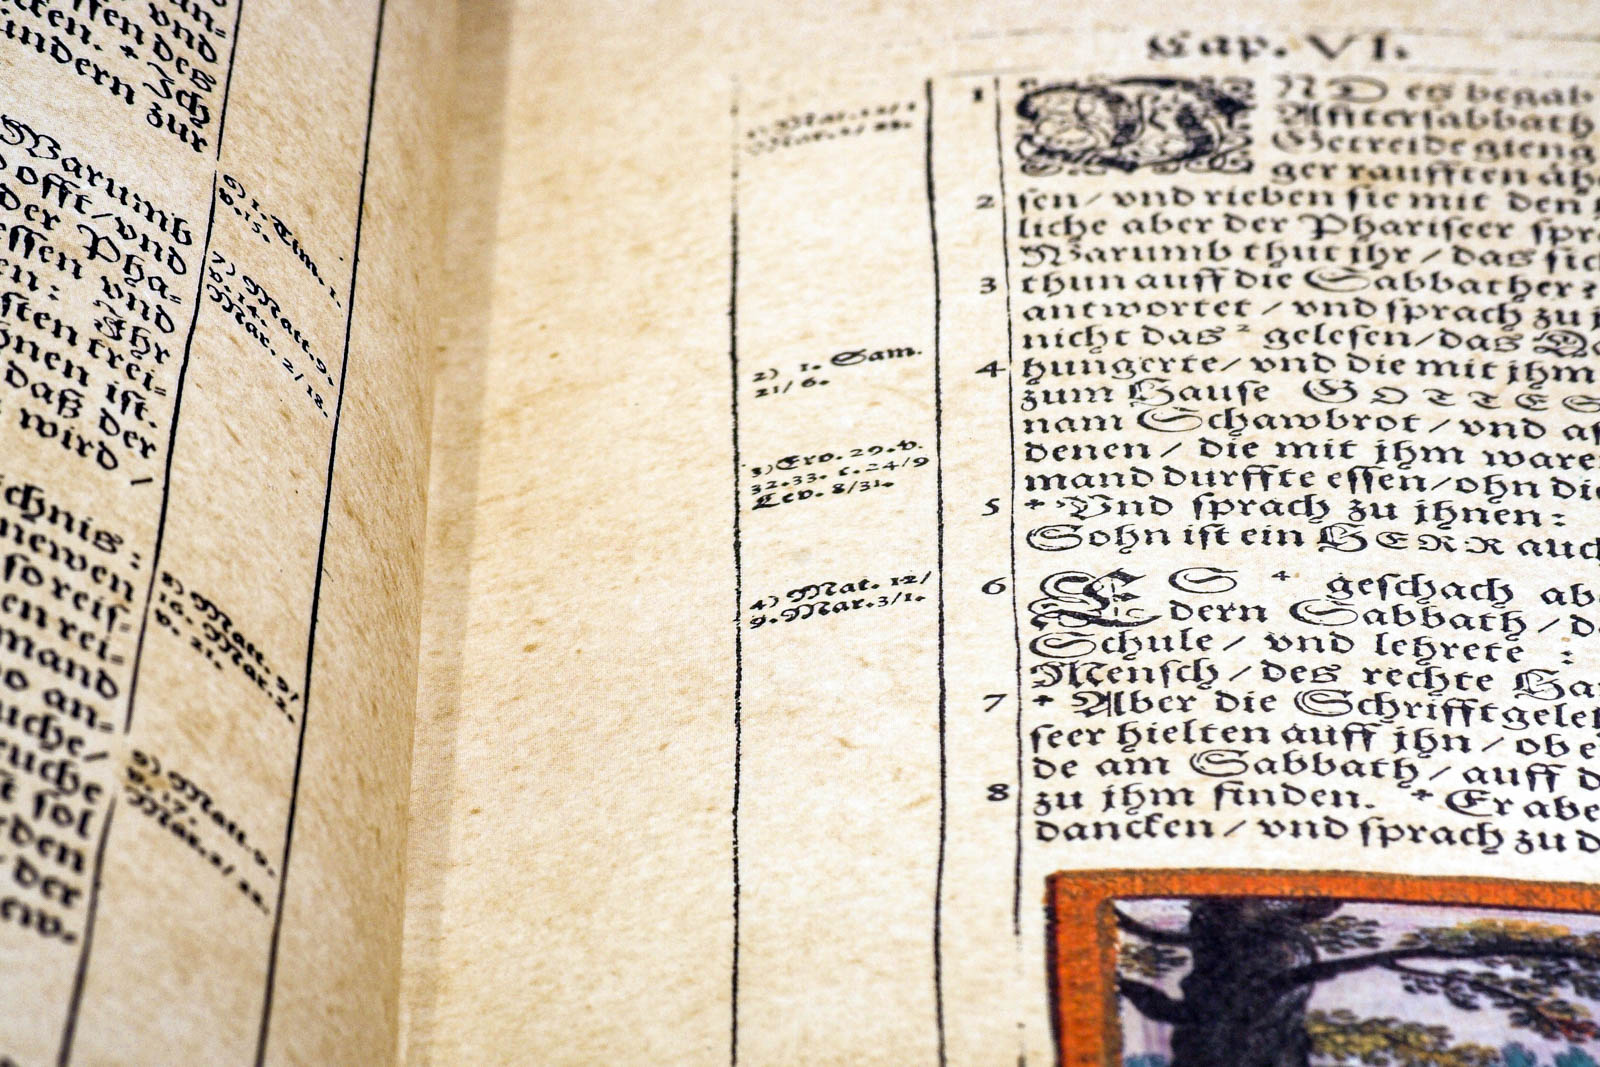 an-
ssen vnd
ten. * Ich
ssen des
ündern zur
Warumb
offt/vnd
der Pha-
essen vnd
en: Ihr
sten trei-
hnen ist.
daß der
wird /
chnis:
newen
so reis-
en rei-
mand
o an-
uche/
uche
sol
den
der
ew.
6) 1. Tim. 1.
v. 15.
7) Matt. 9.
v. 14.
Mar. 2/18.
8) Matt. 9/
16. Mar. 2.
v. 21.
9) Matt. 9.
v. 17.
Mar. 2/ 22.
Cap. VI.
1) Mat. 12/1
Mar. 2/ 23.
2) 1. Sam.
21/6.
3) Exo. 29. v.
32.33. c. 24/9
Lev. 8/31.
4) Mat. 12/
9. Mar. 3/1.
1 VND es begab
Affterſabbath
Getreide gieng
ger raufften äh
2 ſen/ vnd rieben ſie mit den
liche aber der Phariſeer ſpr
Warumb thut ihr/ das ſich
3 thun auff die Sabbather?
antwortet/ vnd ſprach zu j
nicht das ² geleſen/das Da
4 hungerte/ vnd die mit jhm
zum Hauſe GOTTES
nam Schawbrot/ vnd aſ
denen/ die mit jhm ware
mand durffte eſſen/ohn die
5 * Vnd ſprach zu jhnen:
Sohn iſt ein HERR auch
6 ES ⁴ geſchach ab
dern Sabbath/ da
Schule/ vnd lehrete :
Menſch/ des rechte Ha
7 * Aber die Schrifftgeleh
ſeer hielten auff jhn/ ob e
de am Sabbath/ auff d
8 zu jhm finden. * Er abe
dancken/ vnd ſprach zu d